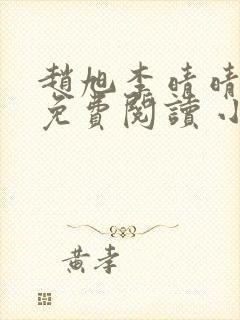 趙旭李晴晴
免費閱讀小
黃孝